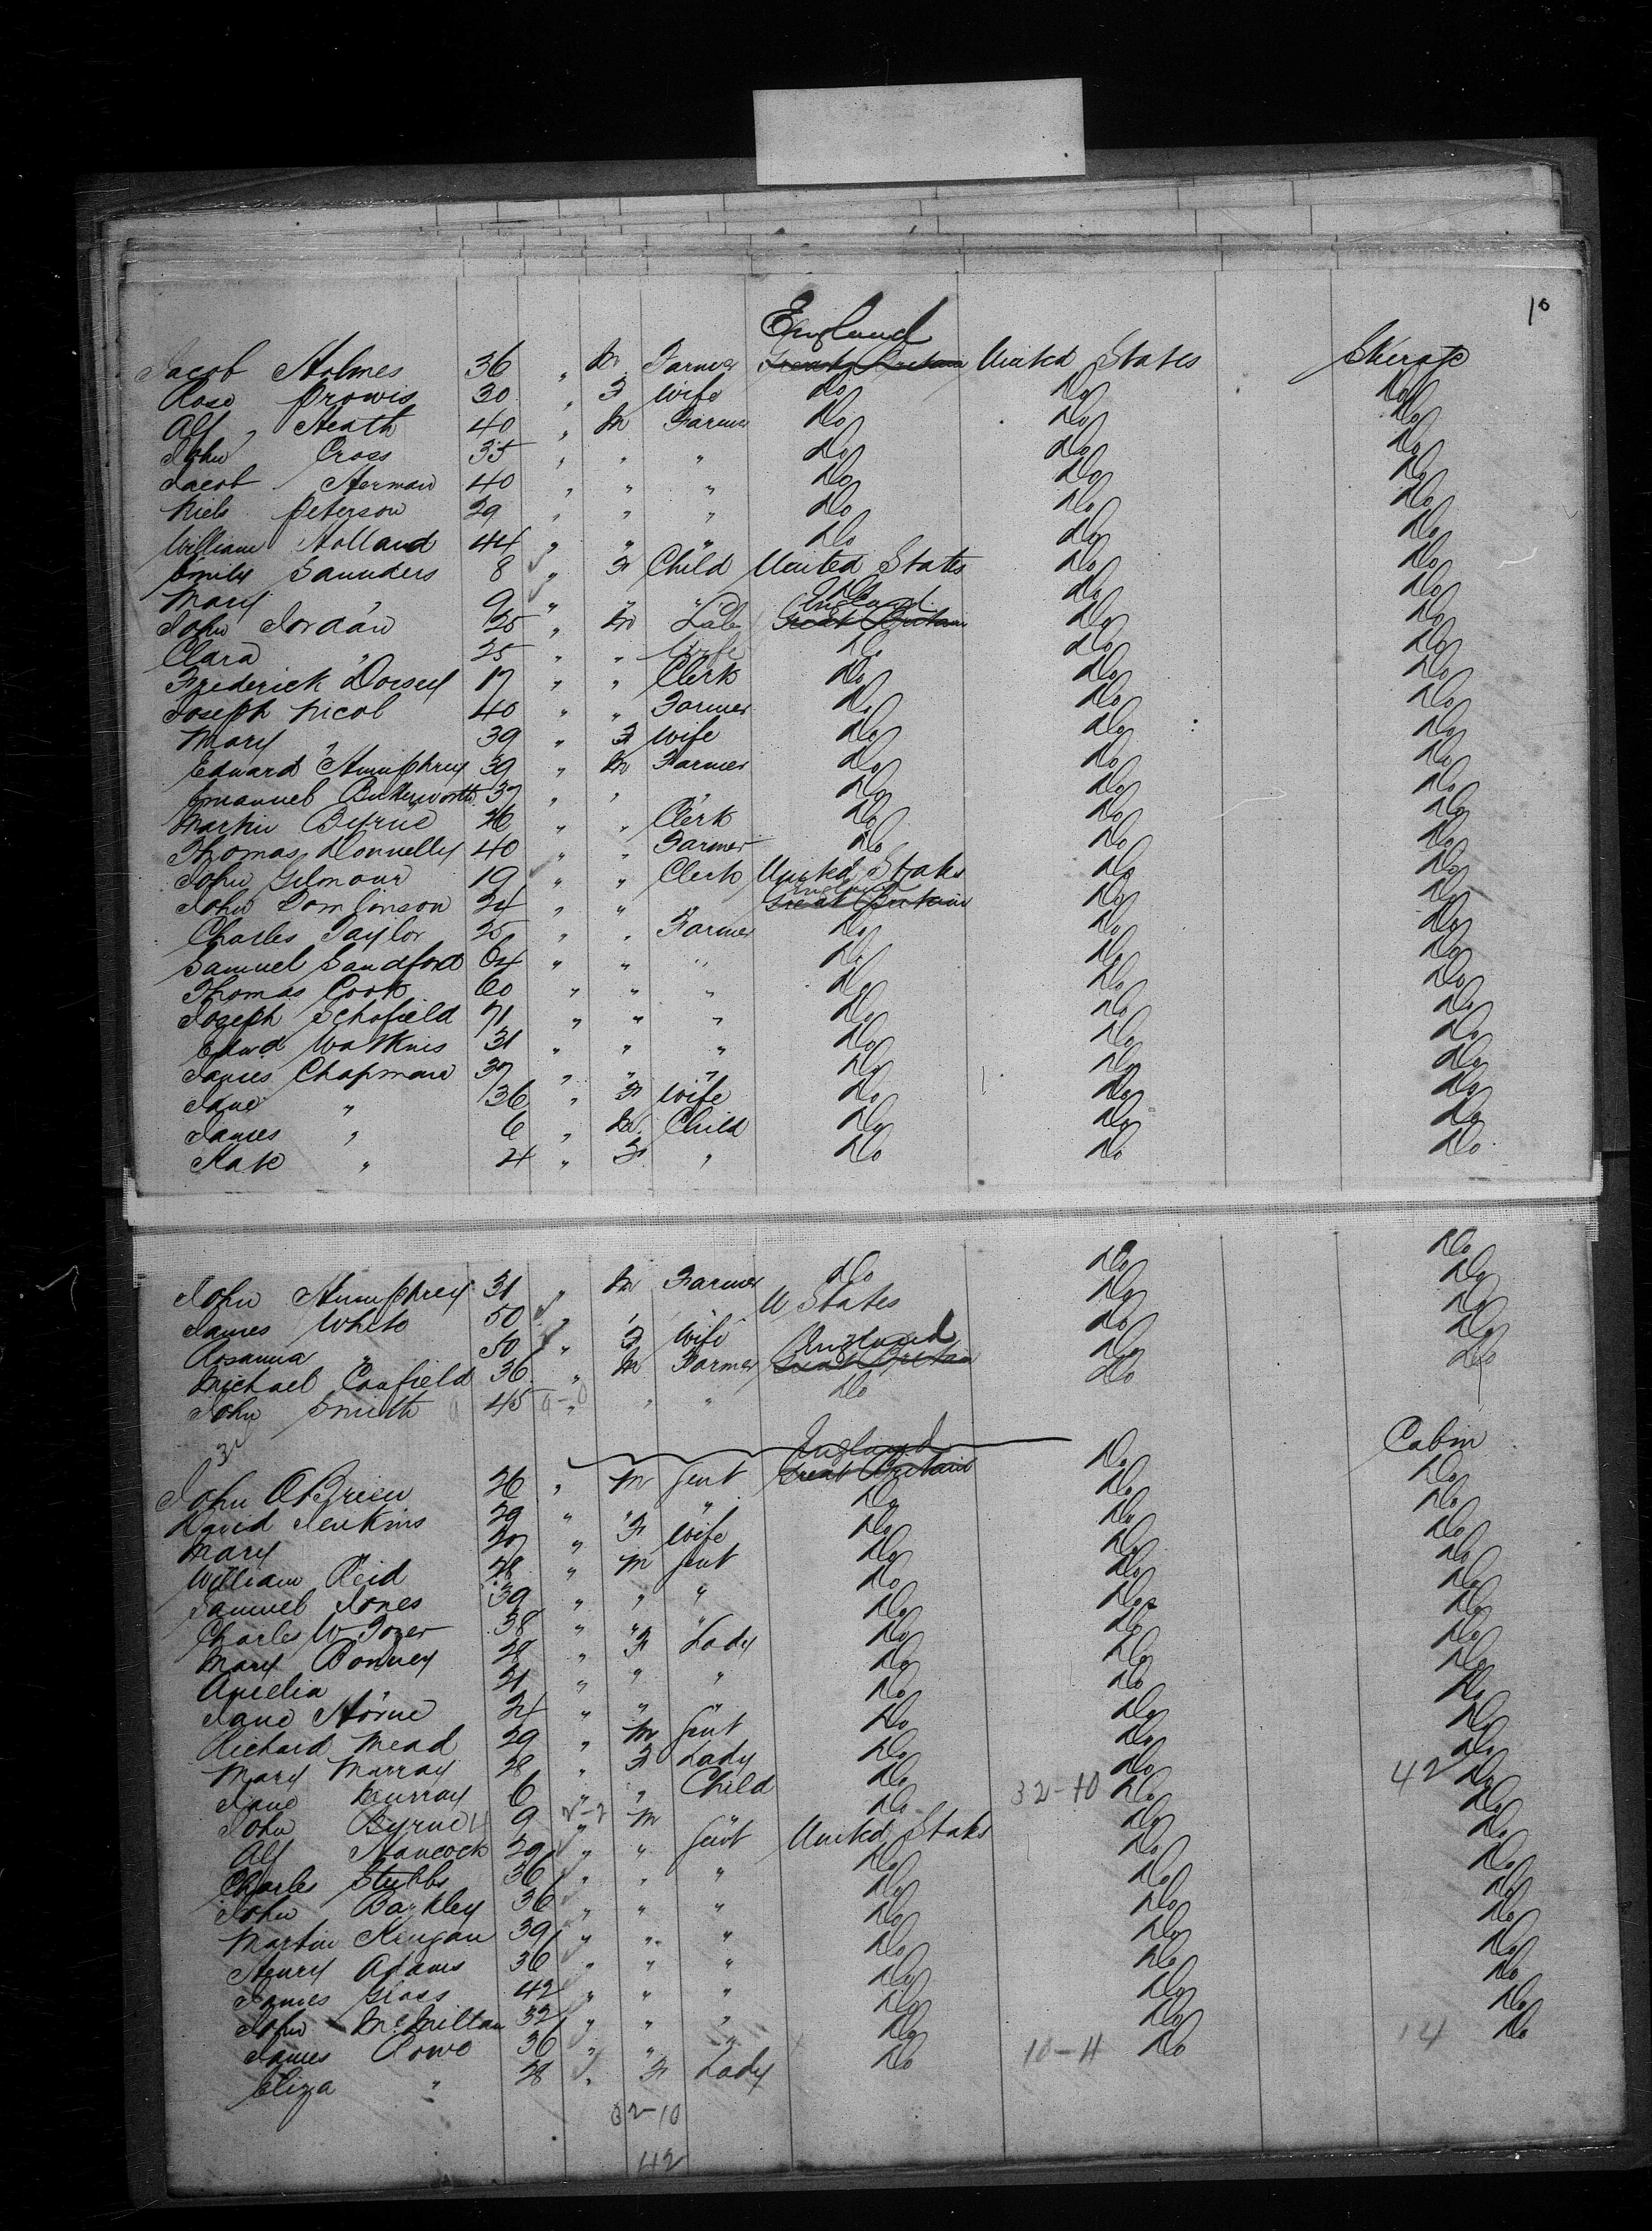 10
England
Jacob Holmes 36 " M Farmer Great Britain United States Steerage
Rose Prowis 30 " F Wife Do Do Do
Alf Heath 40 " M Farmer Do Do Do
John Cross 35 " " " Do Do Do
Jacob Herman 40 " " " Do Do Do
Niels Peterson 29 " " " Do Do Do
William Holland 44 " " " Do Do Do
Emily Saunders 8 " F Child United States Do Do
Mary " 9 " " " Do Do Do
England
John Jordan 25 " M Lab Great Britain Do Do
Clara " 25 " " Wife Do Do Do
Frederick Dorsey 17 " " Clerk Do Do Do
Joseph Nicol 40 " " Farmer Do Do Do
Mary " 39 " F Wife Do Do Do
Edward Humphrey 39 " M Farmer Do Do Do
Emanuel Butterworth 37 " " " Do Do Do
Martin Byrne 26 " " Clerk Do Do Do
Thomas Donnelly 40 " " Farmer Do Do Do
John Gilmour 19 " " Clerk United States Do Do
England
John Tomlinson 24 " " " Great Britain Do Do
Charles Taylor 25 " " Farmer Do Do Do
Samuel Sandford 64 " " " Do Do Do
Thomas Cook 60 " " " Do Do Do
Joseph Schofield 71 " " " Do Do Do
Edwd Watkins 31 " " " Do Do Do
James Chapman 37 " " " Do Do Do
Jane " 36 " F Wife Do Do Do
James " 6 " M Child Do Do Do
Kate " 4 " F " Do Do Do
John Humphrey 31 " M Farmer Do Do Do
James White 50 " " " U States Do Do
Rosanna " 50 " F Wife Do Do
England
Michael Canfield 36 " M Farmer Great Britain Do Do
John Smith 45 " " " Do Do Do
England
John OBrien 26 " M Gent Great Britain Do Cabin
David Jenkins 29 " " " Do Do Do
Mary " 27 " F Wife Do Do Do
William Reid 28 " M Gent Do Do Do
Samuel Jones 39 " " " Do Do Do
Charles W Tozer 38 " " " Do Do Do
Mary Bonney 28 " F Lady Do Do Do
Amelia " 21 " " " Do Do Do
Jane Horne 24 " " " Do Do Do
Richard Mead 29 " M Gent Do Do Do
Mary Murray 28 " F Lady Do Do Do
Jane Murray 6 " " Child Do 32-10 Do 42 Do
John Byrne 9 " M " Do Do Do
Alf Hancock 29 " " Gent United States Do Do
Charles Stubbs 36 " " " Do Do Do
John Barkley 36 " " " Do Do Do
Martin Keugan 39 " " " Do Do Do
Henry Adams 36 " " " Do Do Do
James Glass 42 " " " Do Do Do
John McMillan 32 " " " Do Do Do
James Rowe 36 " " " Do Do Do
Eliza " 28 " F Lady Do 10-4 Do 14 Do
32-10
42